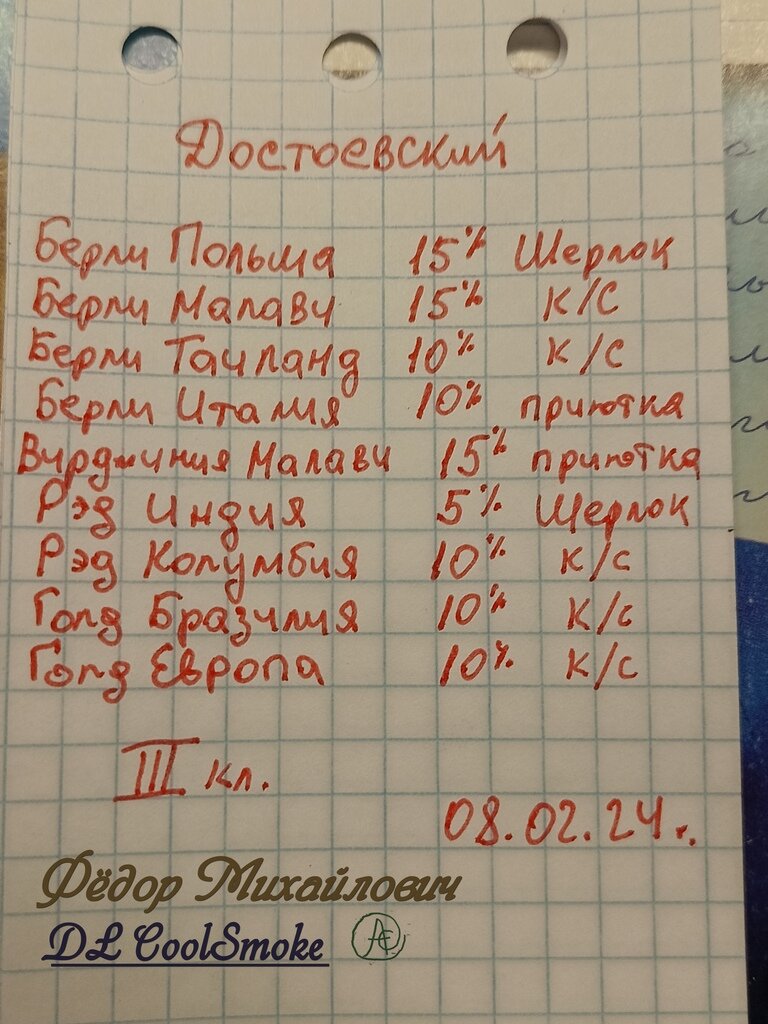 Достоевский
Берли Польша 15% Шерлок
Берли Малави 15% К/С
Берли Таиланд 10% К/С
Берли Италия 10% приютка
Вирджиния Малави 15% приютка
Рэд Индия 5% Шерлок
Рэд Колумбия 10% к/с
Голд Бразилия 10% к/с
Голд Европа 10% к/с
III кл.
08.02.24г.
Фёдор Михайлович
DL CoolSmoke